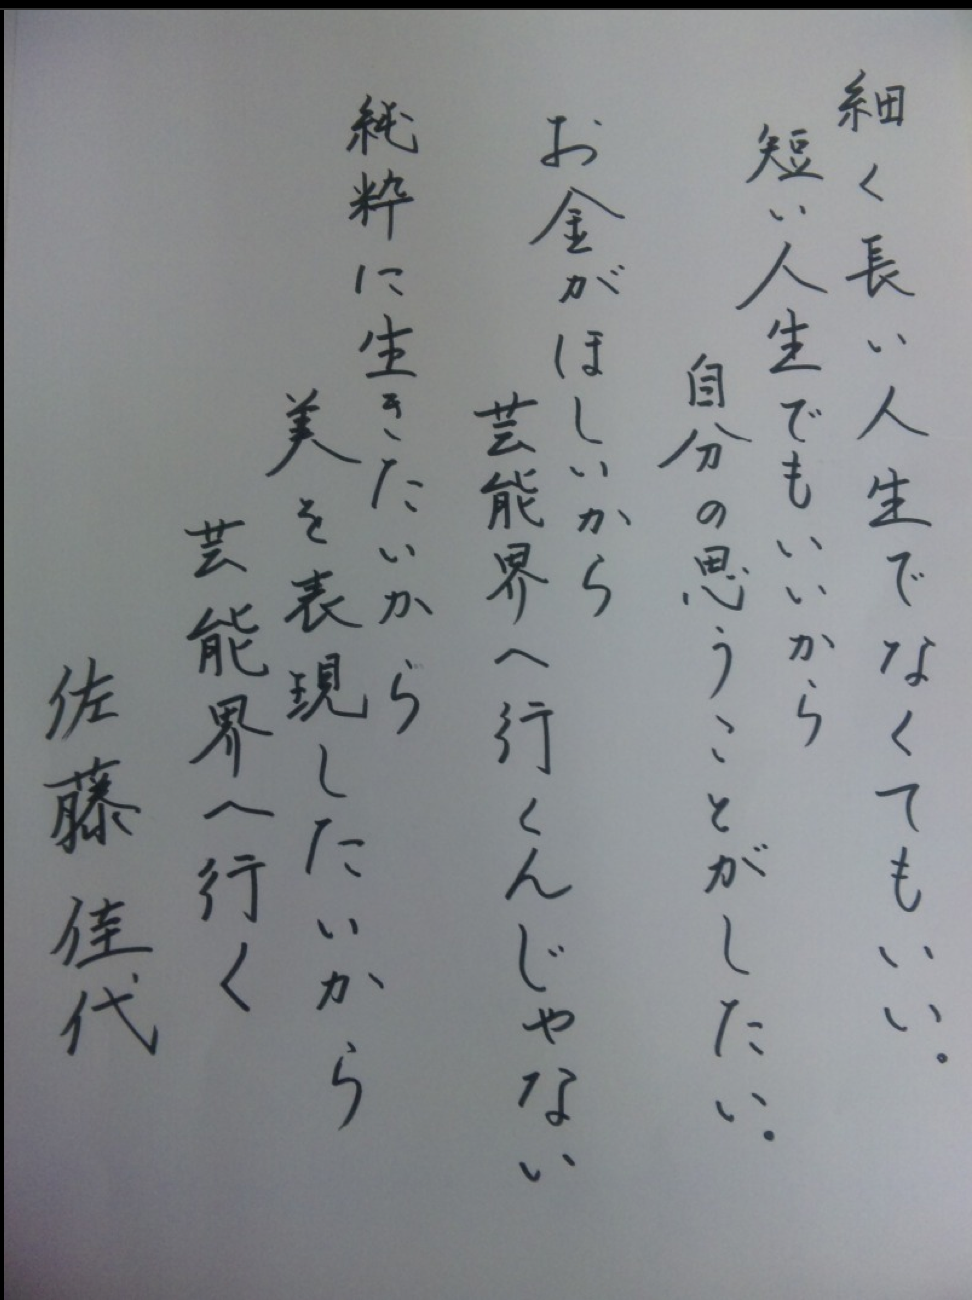 細く長い人生でなくてもいい.
短い人生でもいいから
自分の思うことがしたい.
お金がほしいから
芸能界へ行くんじゃない
純粋に生きたいから
美を表現したいから
芸能界へ行く
佐藤佳代